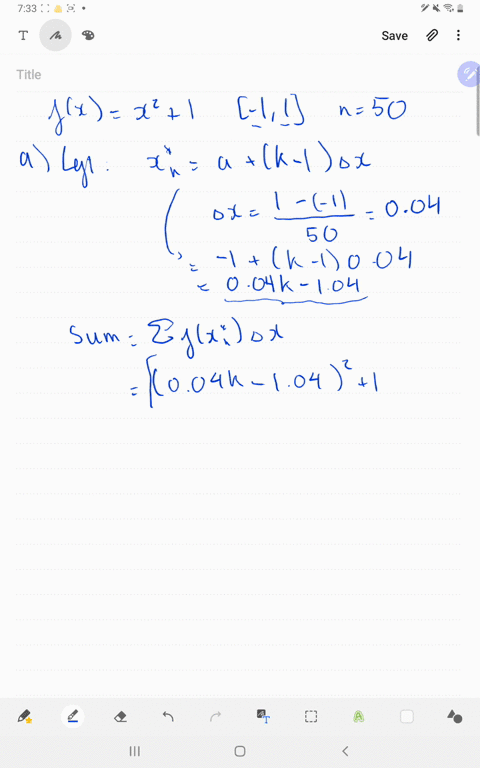 7:33
T Save
Title
f(x) = x² + 1 [-1, 1] n = 50
a) Left: xₖ* = a + (k-1) Δx
Δx = (1 - (-1))/50 = 0.04
= -1 + (k-1) 0.04
= 0.04k - 1.04
Sum = Σ f(xₖ*) Δx
= [(0.04k - 1.04)² + 1
T
A